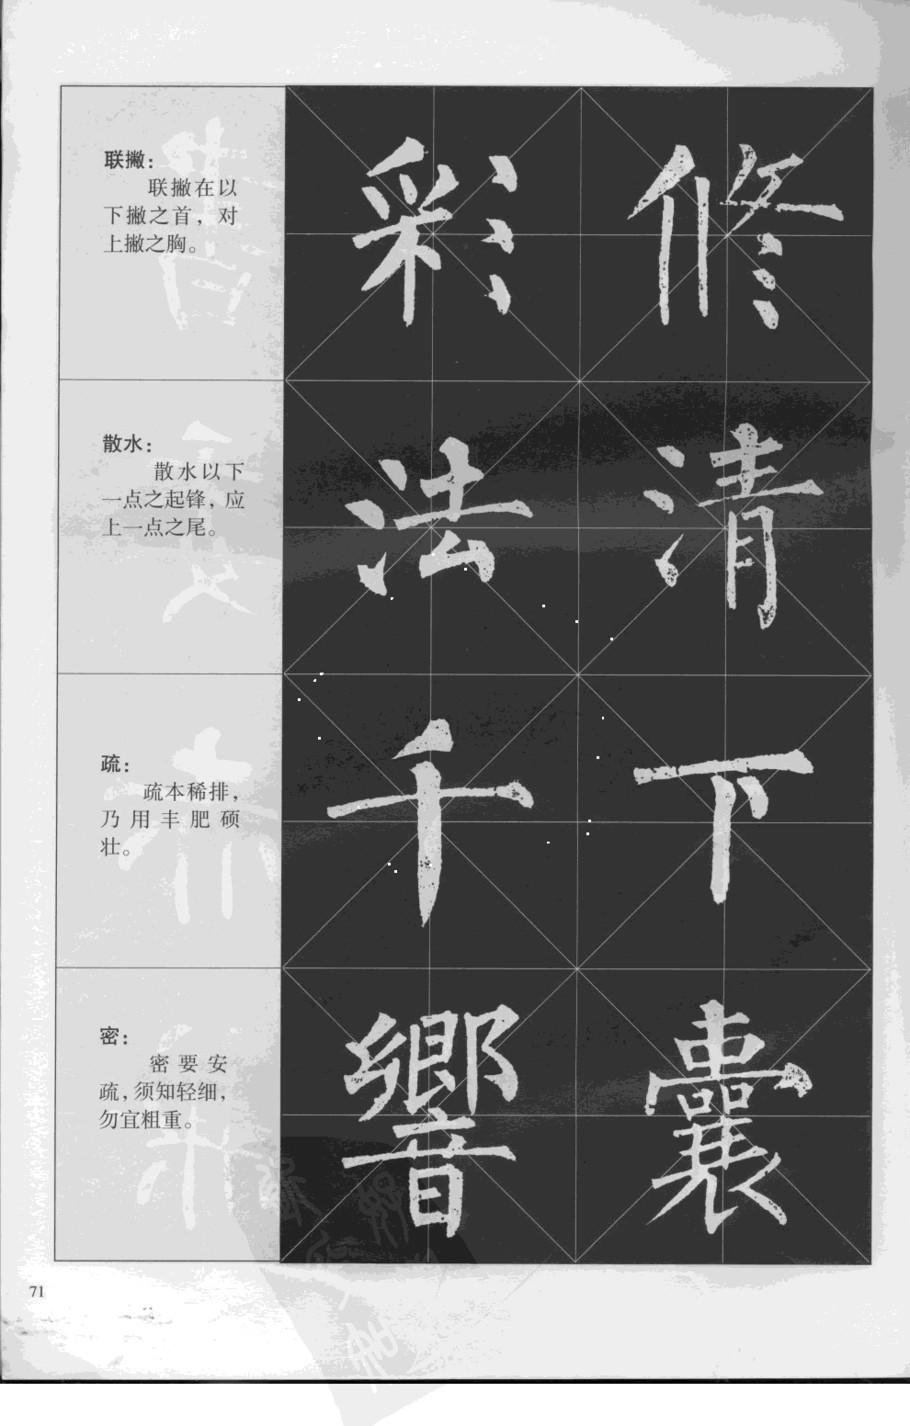 联撇：
联撇在以
下撇之首，对
上撇之胸。
彩 修
散水：
散水以下
一点之起锋，应
上一点之尾。
法 清
疏：
疏本稀排，
乃用丰肥硕
壮。
千 下
密：
密要安
疏，须知轻细，
勿宜粗重。
響 囊
71